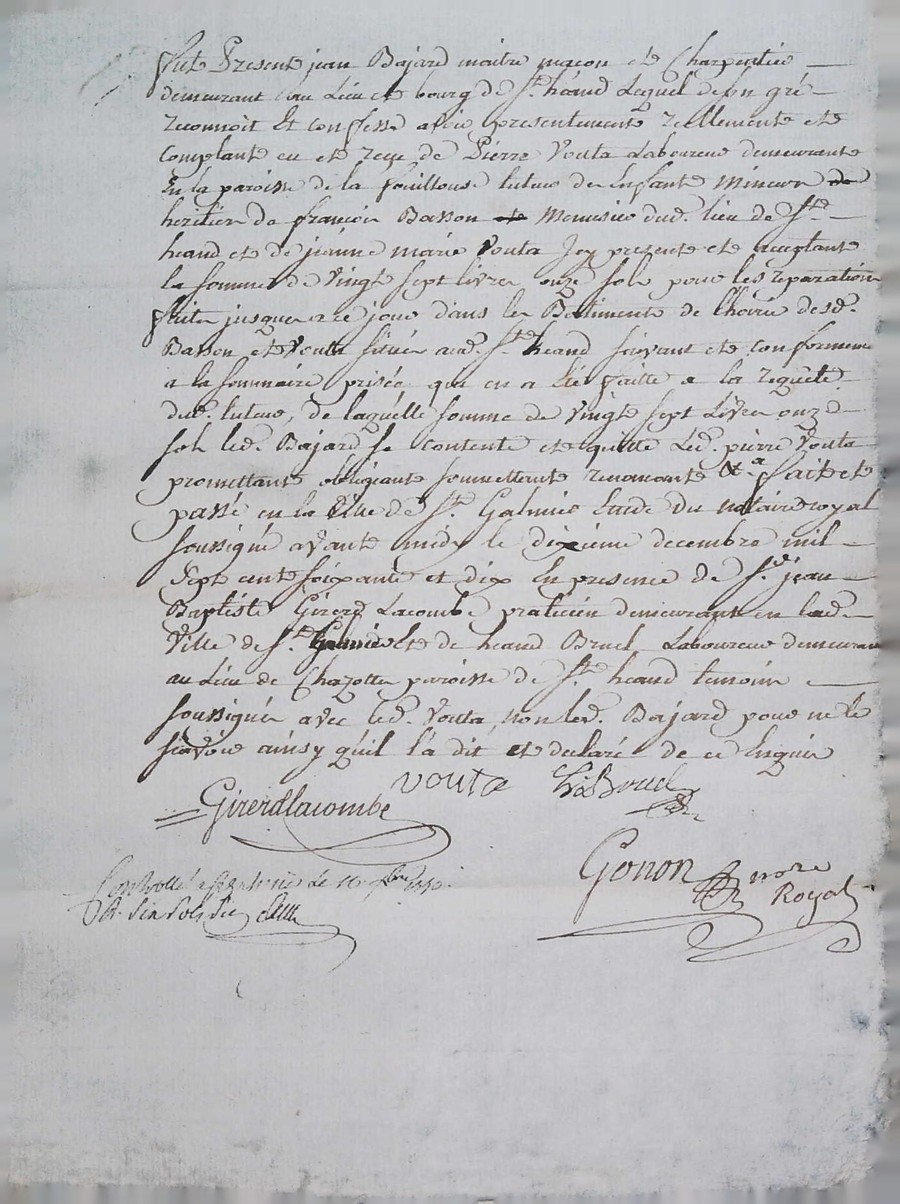 fut Present jean Bajard maitre maçon et Charpentier
demeurant au Lieu et bourg de St. héand Lequel de son gré
reconnoit Et confesse avoir presentement reellement et
comptant eu et reçu de Pierre Vouta Laboureur demeurant
En la paroisse de la fouillouse tuteur des Enfants Mineurs de
heritiers de françois Basson et Menusier dud. lieu de St.
heand et de jeanne marie Vouta Icy present et acceptant
la somme de vingt sept livres onze sols pour les reparations
faites jusques a ce jour dans les Batiments de l'hoirie desd.
Basson et Vouta situés aud. St. heand suivant et conformement
a la sommaire prisée qui en a été faitte a la requete
dud. tuteur, de laquelle somme de vingt sept Livres onze
sols led. Bajard se contente et quitte Led. pierre Vouta
promettant obligeant soumettant renonceant &a. fait et
passé en la Ville de St. Galmier Etude du notaire royal
soussigné avant midy le dixieme decembre mil
Sept cent soixante et dix En presence de Sr. jean
Baptiste Girerd Lacombe praticien demeurant en lad.
Ville de St. Galmier Et de heand Bruel Laboureur demeurant
au Lieu de Chazotte paroisse de St. heand temoins
soussignés avec led. Vouta, non led. Bajard pour ne le
sçavoir ainsy qu'il l'a dit et declaré de ce Enquis
Girerdlacombe vouta Bruel
Gonon nore
Royal
Controllé a St Galmier Le
R. six sols six